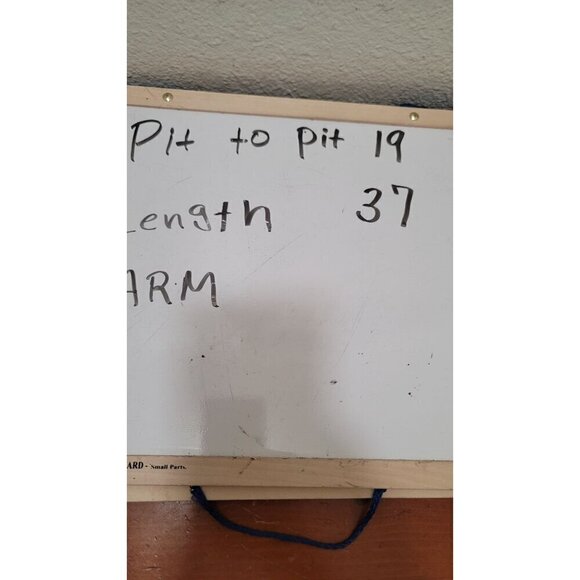 Pit to pit 19
Length 37
ARM
ARD - Small Parts.